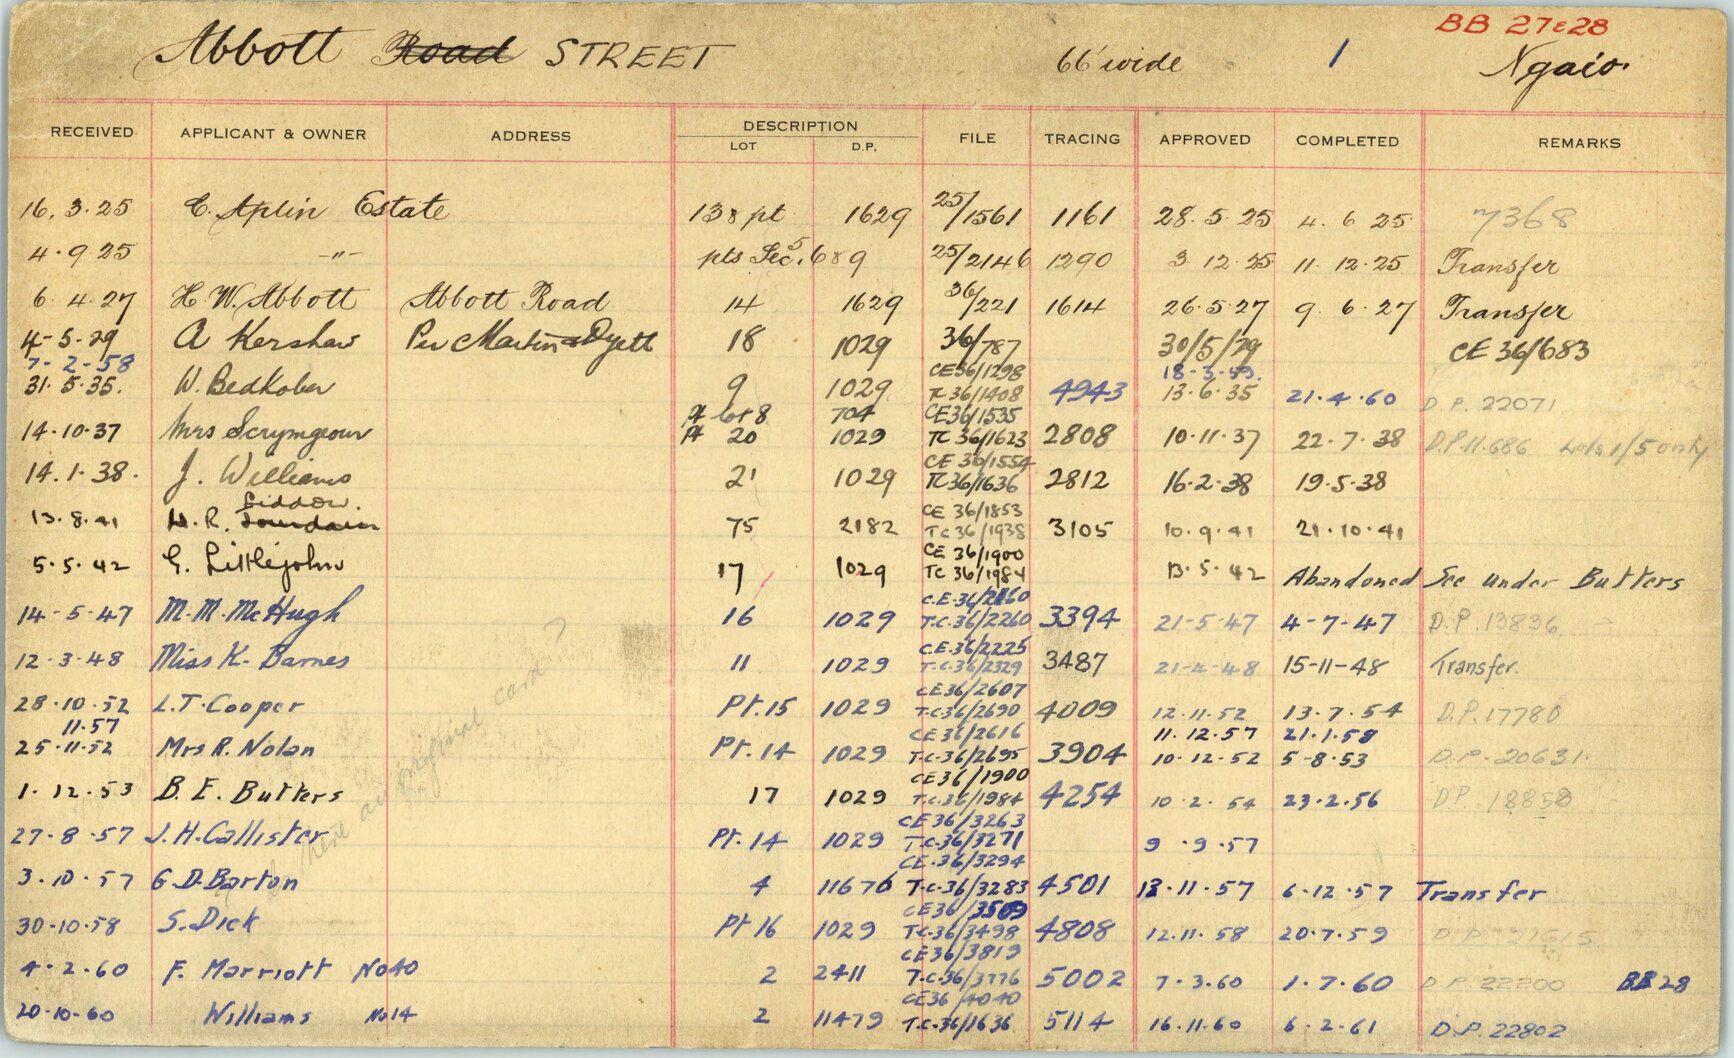 BB 27&28
Abbott Road STREET 66' wide 1 Ngaio.
RECEIVED APPLICANT & OWNER ADDRESS DESCRIPTION FILE TRACING APPROVED COMPLETED REMARKS
LOT D.P.
16.3.25 C. Aplin Estate 138 pt 1629 25/1561 1161 28.5.25 4.6.25 7368
4.9.25 -"- pts Sec. 5, 689 25/2146 1290 3.12.25 11.12.25 Transfer
6.4.27 H.W. Abbott Abbott Road 14 1629 36/221 1614 26.5.27 9.6.27 Transfer
4-5-29 A Kershaw Per Martin & Dyett 18 1029 36/787 30/5/29 CE 36/683
7-2-58 CE36/1298 18-3-59.
31.5.35. W. Bedkober 9 1029 TC 36/1408 4943 13.6.35 21.4.60 D.P. 22071
Pt lot 8 704 CE36/1535
14.10.37 Mrs Scrymgeour Pt 20 1029 TC 36/1623 2808 10.11.37 22.7.38 D.P.11686 Lots 1/5 only
CE 36/1554
14.1.38. J. Williams 21 1029 TC36/1636 2812 16.2.38 19.5.38
Siddow. CE 36/1853
13.8.41 W.R. Jourdain 75 2182 TC 36/1938 3105 10.9.41 21.10.41
CE 36/1900
5.5.42 G. Littlejohn 17 1029 TC 36/1984 13.5.42 Abandoned See under Butters
C.E.36/2160
14-5-47 M.M. McHugh 16 1029 T.C.36/2260 3394 21-5-47 4-7-47 D.P.13836
C.E.36/2225
12-3-48 Miss K. Barnes 11 1029 T.C.36/2329 3487 21-4-48 15-11-48 Transfer.
CE36/2607
28.10.52 L.T. Cooper Pt.15 1029 T.C.36/2690 4009 12.11.52 13.7.54 D.P.17780
11.57 CE 36/2616 11.12.57 21.1.58
25.11.52 Mrs R. Nolan Pt.14 1029 T.C.36/2695 3904 10.12.52 5-8.53 D.P.20631.
CE36/1900
1.12.53 B.E. Butters 17 1029 T.C.36/1984 4254 10.2.54 23.2.56 D.P. 18858
CE36/3263
27.8.57 J.H. Callister Pt.14 1029 T.C.36/3271 9.9.57
CE.36/3294
3.10.57 G.D. Barton 4 11676 T.C.36/3283 4501 13.11.57 6.12.57 Transfer
CE36/3509
30.10.58 S. Dick Pt 16 1029 T.C.36/3498 4808 12.11.58 20.7.59 D.P. 21615
CE36/3819
4.2.60 F. Marriott No40 2 2411 T.C.36/3776 5002 7.3.60 1.7.60 D.P. 22200 BB 28
CE36/4040
20.10.60 Williams No14 2 11479 T.C.36/1636 5114 16.11.60 6.2.61 D.P. 22802
original card?